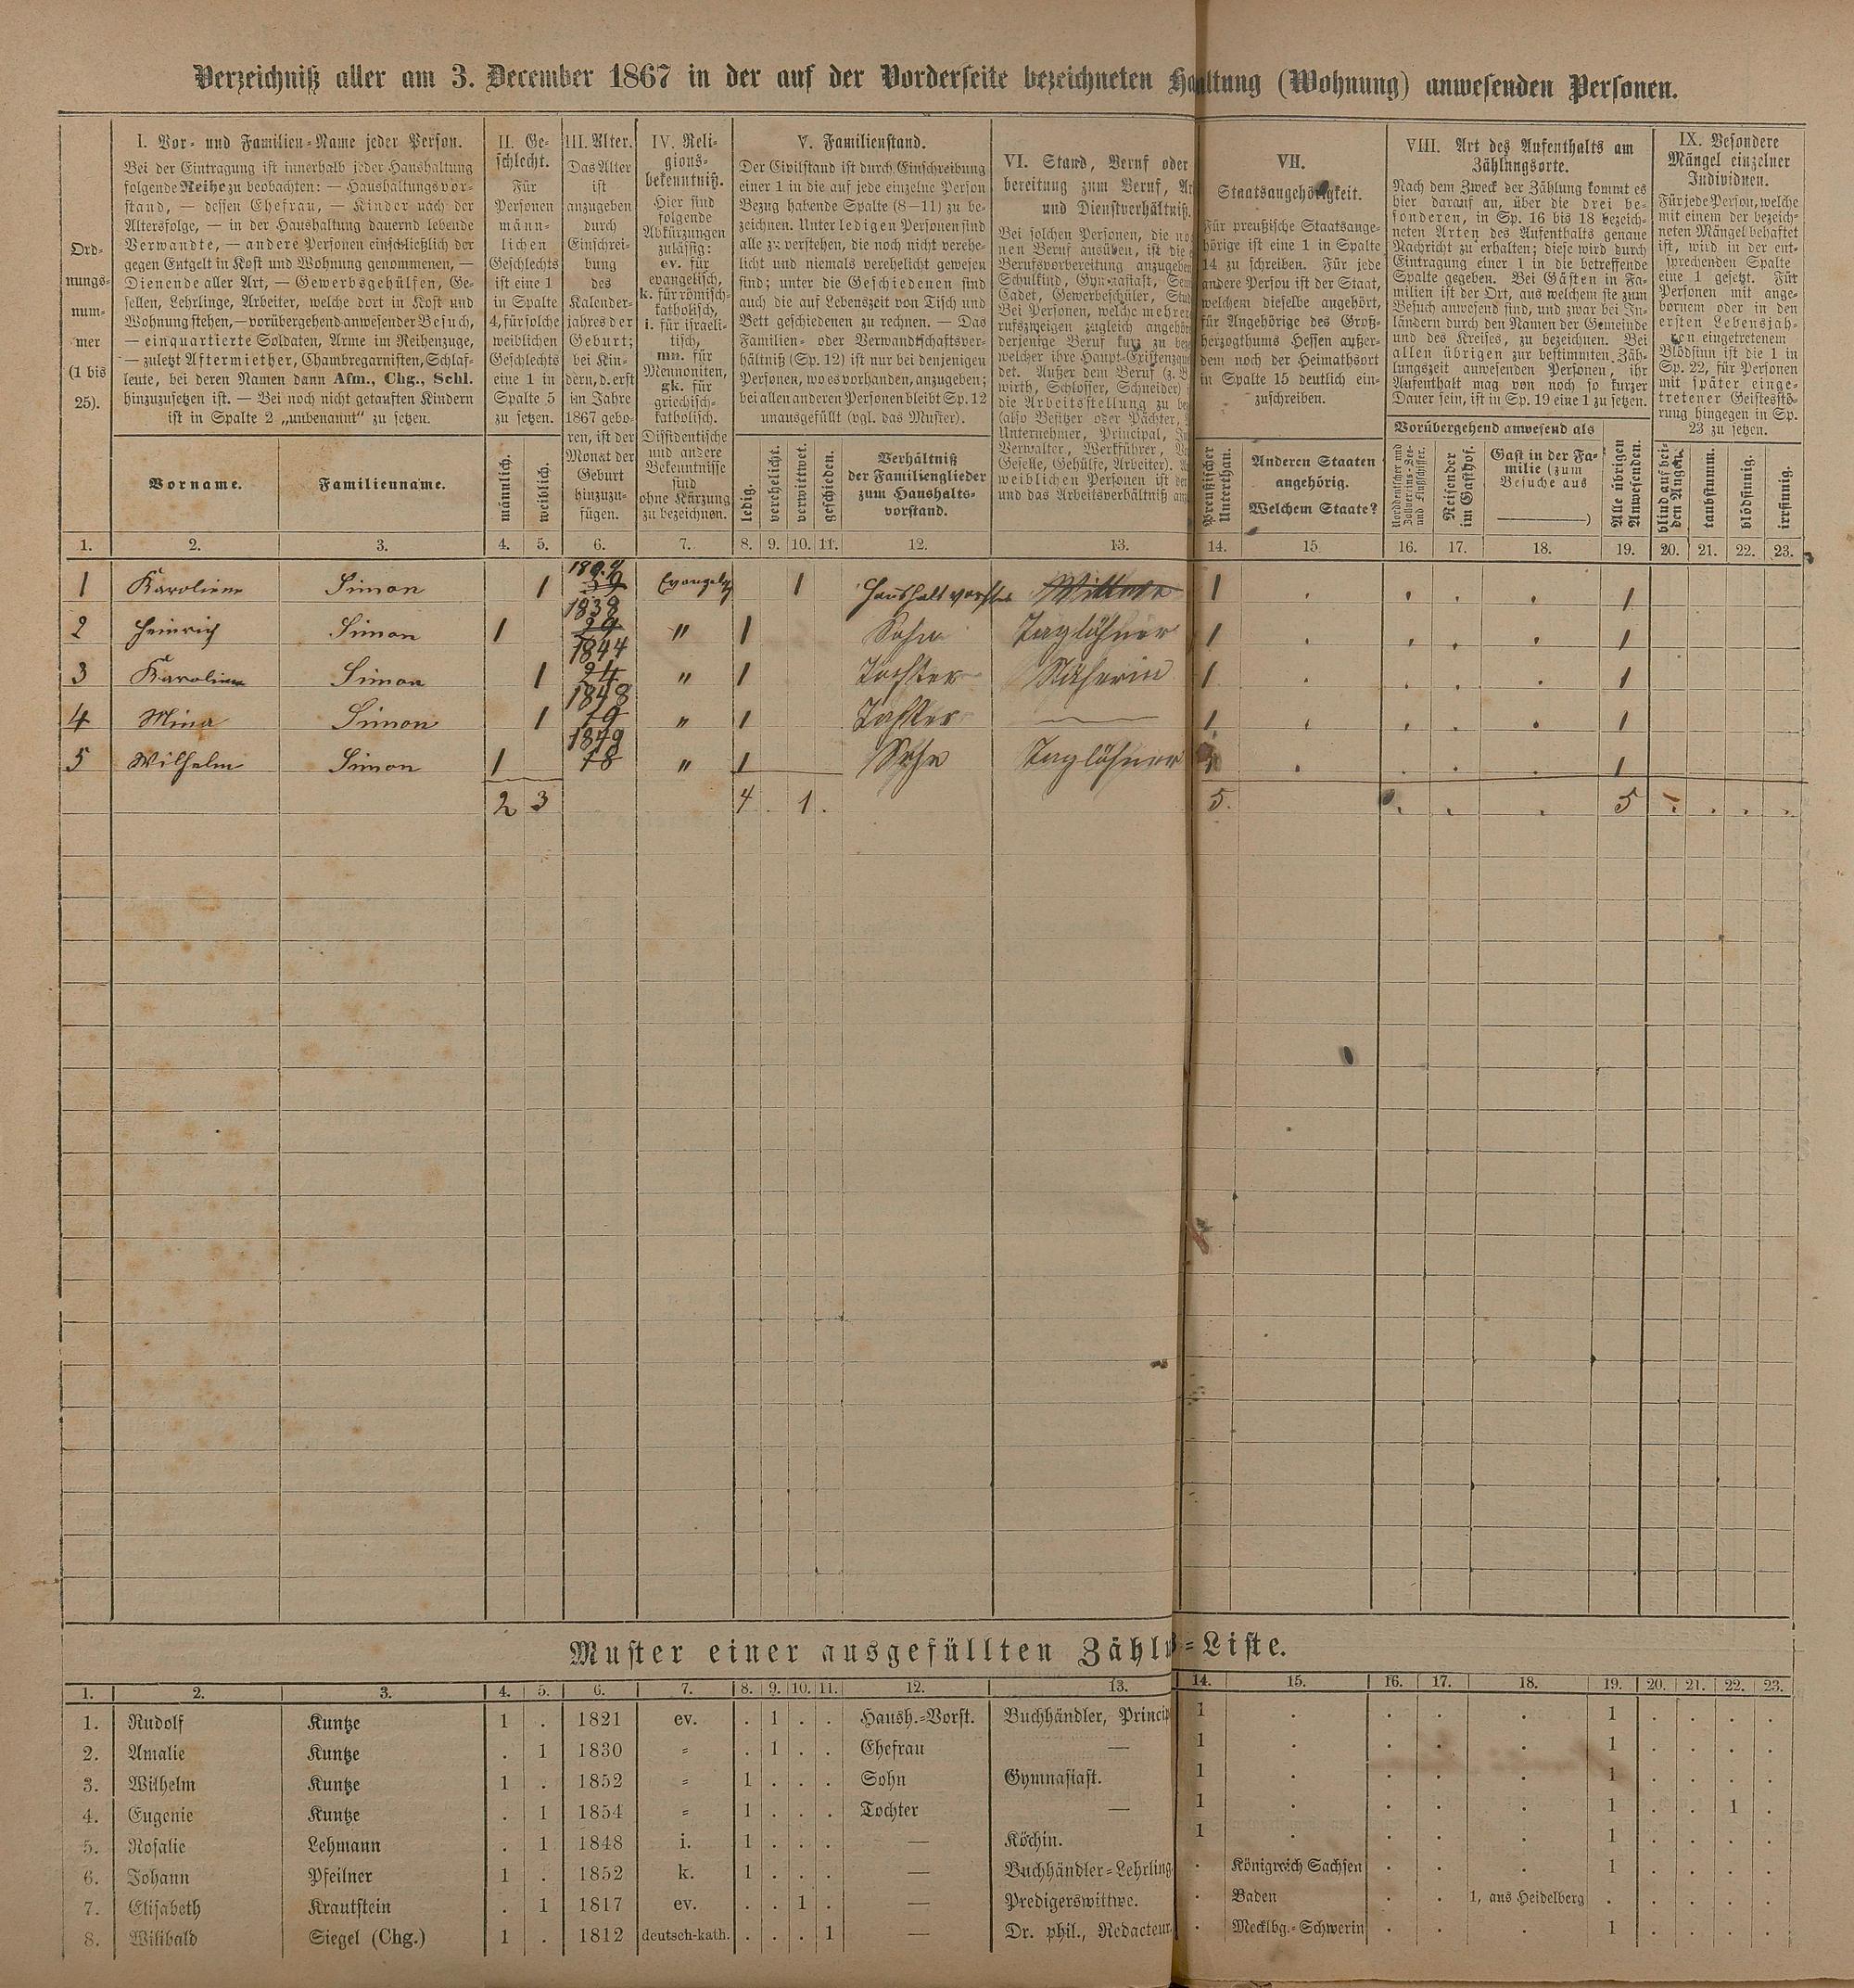 Verzeichniß aller am 3. December 1867 in der auf der Vorderseite bezeichneten Haltung (Wohnung) anwesenden Personen.
Ord-
nungs-
num-
mer
(1 bis
25).
I. Vor- und Familien-Name jeder Person.
Bei der Eintragung ist innerhalb jeder Haushaltung
folgende Reihe zu beobachten: — Haushaltungsvor-
stand, — dessen Ehefrau, — Kinder nach der
Altersfolge, — in der Haushaltung dauernd lebende
Verwandte, — andere Personen einschließlich der
gegen Entgelt in Kost und Wohnung genommenen, —
Dienende aller Art, — Gewerbsgehülfen, Ge-
sellen, Lehrlinge, Arbeiter, welche dort in Kost und
Wohnung stehen, — vorübergehend anwesender Besuch,
— einquartierte Soldaten, Arme im Reihenzuge,
— zuletzt Aftermiether, Chambregarnisten, Schlaf-
leute, bei deren Namen dann Afm., Chg., Schl.
hinzuzusetzen ist. — Bei noch nicht getauften Kindern
ist in Spalte 2 „unbenannt“ zu setzen.
Vorname. Familienname.
II. Ge-
schlecht.
Für
Personen
männ-
lichen
Geschlechts
ist eine 1
in Spalte
4, für solche
weiblichen
Geschlechts
eine 1 in
Spalte 5
zu setzen.
männlich. weiblich.
III. Alter.
Das Alter
ist
anzugeben
durch
Einschrei-
bung
des
Kalender-
jahres der
Geburt;
bei Kin-
dern, d. erst
im Jahre
1867 gebo-
ren, ist der
Monat der
Geburt
hinzuzu-
fügen.
IV. Reli-
gions-
bekenntniß.
Hier sind
folgende
Abkürzungen
zulässig:
ev. für
evangelisch,
k. für römisch-
katholisch,
i. für israeli-
tisch,
mn. für
Mennoniten,
gk. für
griechisch-
katholisch.
Dissidentische
und andere
Bekenntnisse
sind
ohne Kürzung
zu bezeichnen.
V. Familienstand.
Der Civilstand ist durch Einschreibung
einer 1 in die auf jede einzelne Person
Bezug habende Spalte (8—11) zu be-
zeichnen. Unter ledigen Personen sind
alle zu verstehen, die noch nicht verehe-
licht und niemals verehelicht gewesen
sind; unter die Geschiedenen sind
auch die auf Lebenszeit von Tisch und
Bett geschiedenen zu rechnen. — Das
Familien- oder Verwandtschaftsver-
hältniß (Sp. 12) ist nur bei denjenigen
Personen, wo es vorhanden, anzugeben;
bei allen anderen Personen bleibt Sp. 12
unausgefüllt (vgl. das Muster).
ledig. verehelicht. verwittwet. geschieden.
Verhältniß
der Familienglieder
zum Haushalts-
vorstand.
VI. Stand, Beruf oder
bereitung zum Beruf,
und Dienstverhältniß.
Bei solchen Personen, die
nen Beruf ausüben, ist die
Berufsvorbereitung anzugeben
Schulkind, Gymnasiast,
Cadet, Gewerbeschüler,
Bei Personen, welche mehrer
rufszweigen zugleich angehör
derjenige Beruf kurz zu
welcher ihre Haupt-Existenz
det. Außer dem Beruf (z. B.
wirth, Schlosser, Schneider)
die Arbeitsstellung zu
(also Besitzer oder Pächter,
Unternehmer, Principal,
Verwalter, Werkführer,
Geselle, Gehülfe, Arbeiter).
weiblichen Personen ist
und das Arbeitsverhältniß
VII.
Staatsangehörigkeit.
Für preußische Staatsange-
hörige ist eine 1 in Spalte
14 zu schreiben. Für jede
andere Person ist der Staat,
welchem dieselbe angehört,
für Angehörige des Groß-
herzogthums Hessen außer-
dem noch der Heimathsort
in Spalte 15 deutlich ein-
zuschreiben.
Preußischer
Unterthan.
Anderen Staaten
angehörig.
Welchem Staate?
VIII. Art des Aufenthalts am
Zählungsorte.
Nach dem Zweck der Zählung kommt es
hier darauf an, über die drei be-
sonderen, in Sp. 16 bis 18 bezeich-
neten Arten des Aufenthalts genaue
Nachricht zu erhalten; diese wird durch
Eintragung einer 1 in die betreffende
Spalte gegeben. Bei Gästen in Fa-
milien ist der Ort, aus welchem sie zum
Besuch anwesend sind, und zwar bei In-
ländern durch den Namen der Gemeinde
und des Kreises, zu bezeichnen. Bei
allen übrigen zur bestimmten Zäh-
lungszeit anwesenden Personen, ihr
Aufenthalt mag von noch so kurzer
Dauer sein, ist in Sp. 19 eine 1 zu setzen.
Vorübergehend anwesend als
Norddeutscher und
Zollvereins-See-
und Flußschiffer.
Reisender
im Gasthof.
Gast in der Fa-
milie (zum
Besuche aus
)
Alle übrigen
Anwesenden.
IX. Besondere
Mängel einzelner
Individuen.
Für jede Person, welche
mit einem der bezeich-
neten Mängel behaftet
ist, wird in der ent-
sprechenden Spalte
eine 1 gesetzt. Für
Personen mit ange-
bornem oder in den
ersten Lebensjah-
ren eingetretenem
Blödsinn ist die 1 in
Sp. 22, für Personen
mit später einge-
tretener Geistesstö-
rung hingegen in Sp.
23 zu setzen.
blind auf bei-
den Augen.
taubstumm.
blödsinnig.
irrsinnig.
1. 2. 3. 4. 5. 6. 7. 8. 9. 10. 11. 12. 13. 14. 15. 16. 17. 18. 19. 20. 21. 22. 23.
1 Karoline Simon 1 Evangely 1 Haushalt vorstes Wittwe 1 . . . . 1
2 Heinrich Simon 1 1838 29 " 1 Sohn Taglöhner 1 . . . . 1
3 Karoline Simon 1 1844 24 " 1 Tochter Näherin 1 . . . . 1
4 Mina Simon 1 1848 19 " 1 Tochter — 1 . . . . 1
5 Wilhelm Simon 1 1849 18 " 1 Sohn Taglöhner 1 . . . . 1
2 3 4 . 1 . 5. . . . 5 . . . .
Muster einer ausgefüllten Zähl-Liste.
1. 2. 3. 4. 5. 6. 7. 8. 9. 10. 11. 12. 13. 14. 15. 16. 17. 18. 19. 20. 21. 22. 23.
1. Rudolf Kuntze 1 . 1821 ev. . 1 . . Haush.-Vorst. Buchhändler, Princip 1 . . . . 1 . . . .
2. Amalie Kuntze . 1 1830 = . 1 . . Ehefrau — 1 . . . . 1 . . . .
3. Wilhelm Kuntze 1 . 1852 = 1 . . . Sohn Gymnasiast. 1 . . . . 1 . . . .
4. Eugenie Kuntze . 1 1854 = 1 . . . Tochter — 1 . . . . 1 . . 1 .
5. Rosalie Lehmann . 1 1848 i. 1 . . . — Köchin. 1 . . . . 1 . . . .
6. Johann Pfeilner 1 . 1852 k. 1 . . . — Buchhändler-Lehrling . Königreich Sachsen . . . 1 . . . .
7. Elisabeth Krautstein . 1 1817 ev. . . 1 . — Predigerswittwe. . Baden . . 1, aus Heidelberg . . . . .
8. Wilibald Siegel (Chg.) 1 . 1812 deutsch-kath. . . . 1 — Dr. phil., Redacteur. . Mecklbg.-Schwerin . . . 1 . . . .